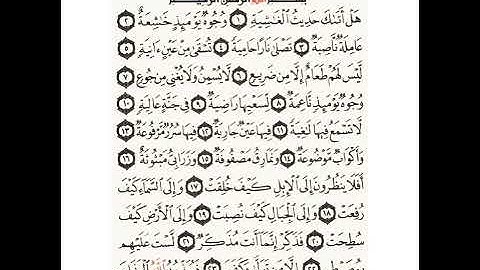 هَلْ أَتَىٰكَ حَدِيثُ ٱلْغَٰشِيَةِ ١ وُجُوهٌ يَوْمَئِذٍ خَٰشِعَةٌ ٢
عَامِلَةٌ نَّاصِبَةٌ ٣ تَصْلَىٰ نَارًا حَامِيَةً ٤ تُسْقَىٰ مِنْ عَيْنٍ ءَانِيَةٍ ٥
لَّيْسَ لَهُمْ طَعَامٌ إِلَّا مِن ضَرِيعٍ ٦ لَّا يُسْمِنُ وَلَا يُغْنِى مِن جُوعٍ ٧
وُجُوهٌ يَوْمَئِذٍ نَّاعِمَةٌ ٨ لِّسَعْيِهَا رَاضِيَةٌ ٩ فِى جَنَّةٍ عَالِيَةٍ ١٠
لَّا تَسْمَعُ فِيهَا لَٰغِيَةً ١١ فِيهَا عَيْنٌ جَارِيَةٌ ١٢ فِيهَا سُرُرٌ مَّرْفُوعَةٌ ١٣
وَأَكْوَابٌ مَّوْضُوعَةٌ ١٤ وَنَمَارِقُ مَصْفُوفَةٌ ١٥ وَزَرَابِىُّ مَبْثُوثَةٌ ١٦
أَفَلَا يَنظُرُونَ إِلَى ٱلْإِبِلِ كَيْفَ خُلِقَتْ ١٧ وَإِلَى ٱلسَّمَآءِ كَيْفَ
رُفِعَتْ ١٨ وَإِلَى ٱلْجِبَالِ كَيْفَ نُصِبَتْ ١٩ وَإِلَى ٱلْأَرْضِ كَيْفَ
سُطِحَتْ ٢٠ فَذَكِّرْ إِنَّمَآ أَنتَ مُذَكِّرٌ ٢١ لَّسْتَ عَلَيْهِم